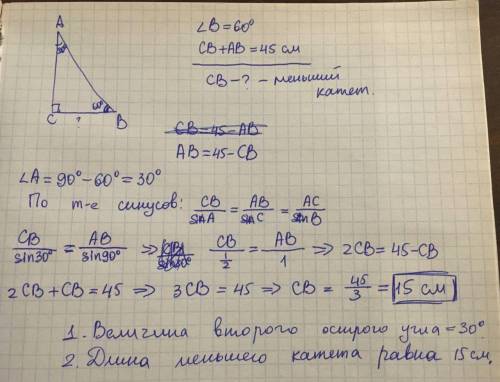 A
30°
C
?
60°
B
∠B = 60°
CB + AB = 45 см
CB - ? - меньший
катет.
CB = 45 - AB
AB = 45 - CB
∠A = 90° - 60° = 30°
По т-е синусов: CB/sinA = AB/sinC = AC/sinB
CB/sin30° = AB/sin90° => CB/(1/2) = AB/1 => 2CB = 45 - CB
2CB + CB = 45 => 3CB = 45 => CB = 45/3 = 15 см
1. Величина второго острого угла = 30°
2. Длина меньшего катета равна 15 см.